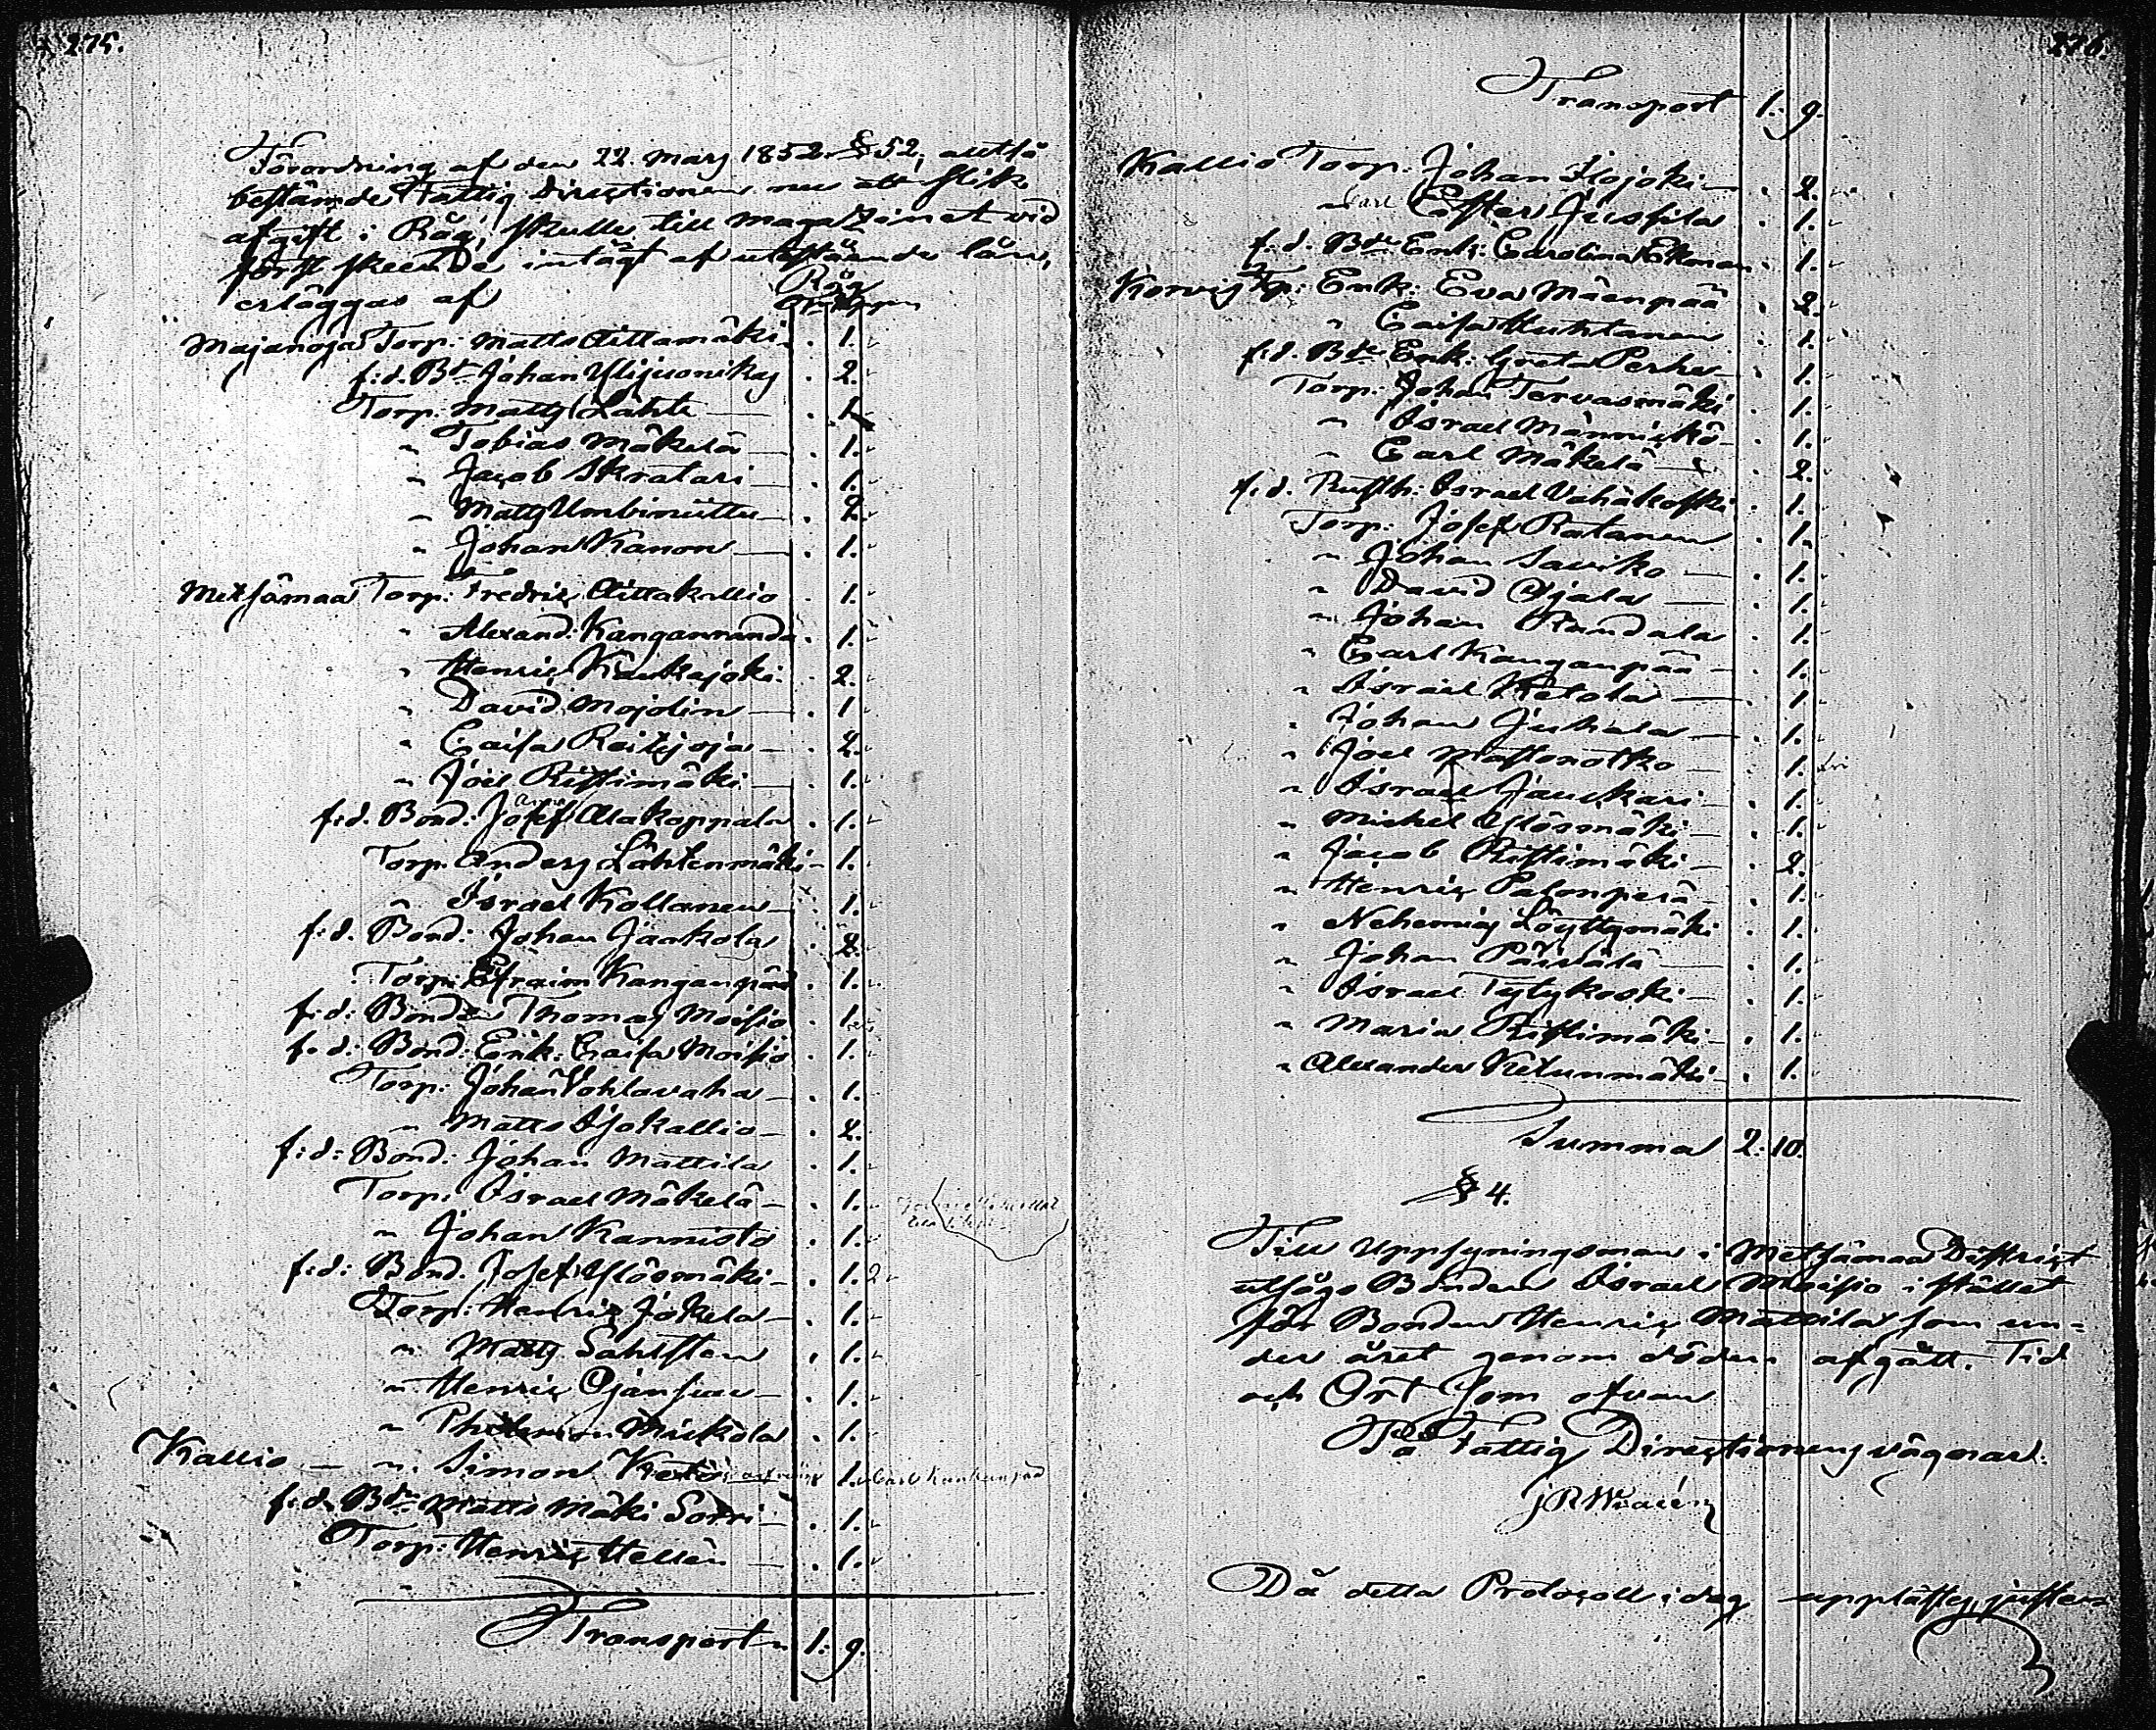 275.
Förordning af den 22 Mars 1852 § 52, alltså
bestämde Fattig Directionen nu att slik
afgift i Råg, skulle till Magazinet vid
först skeende intägt af utestående lån,
erläggas af
Råg
Majanoja Torp: Matts Aittamäki . 1.
f:d. Bd Johan Ylijuonikas . 2.
Torp. Matts Lähte — . 1.
" Tobias Mäkelä — . 1.
" Jacob Skratari — . 1.
" Matts Umbiniittu — . 2.
" Johan Kanon — . 1.
Metsämaa Torp. Fredric Aittakallio . 1.
" Alexand: Kanganranda . 1.
" Henric Kaukajoki . 2.
" David Mojolin — . 1
" Caisa Reitjoja — . 2.
" Joel Ristimäki — . 1.
f:d. Bond: Josef Alakoppala . 1.
Torp. Anders Lähtenmäki — 1.
" Israel Kollanen — . 1.
f:d. Bond: Johan Jaakola . 2.
Torp: Efraim Kanganpää . 1.
f:d: Bonde Thomas Moisio . 1.
f:d: Bond: Enk: Caisa Moisio . 1.
Torp: Johan Vohlavaha — . 1.
" Matts Isokallio — . 2.
f:d: Bond: Johan Mattila . 1.
Torp: Israel Mäkelä — . 1.
" Johan Kannisto . 1.
f:d: Bond. Josef Ylösmäki — . 1. 2
Torp: Henric Jokela — . 1.
" Matts Sahlsten . 1.
" Henric Ojansuu — . 1.
" Philemon Mickola . 1.
Kallio — " Simon Keto 1. Carl Kankanpää
f:d. Bd Matts Mäki Sorri — . 1.
Torp: Henric Hellén — . 1.
Transport 1: 9.
276
Transport 1: 9.
Kallio Torp: Johan Isojoki — . 2.
" Carl Ester Jussila . 1.
f:d. Bde Enk: Carolina Ekman . 1.
Korvis Tp: Enk: Eva Mäenpää . 2.
" Caisa Huhtanen . 1.
f:d. Bde Enk: Greta Perhe — . 1.
Torp: Johan Tervasmäki . 1.
" Israel Männickö — . 1.
" Carl Mäkelä — . 2.
f:d. Rusth: Israel Vähäkoski . 1.
Torp: Josef Ratanen . 1.
" Johan Saviko — . 1.
" David Ojala — . 1.
" Johan Randala . 1.
" Carl Kanganpää — . 1.
" Israel Ketola — . 1
" Johan Juhala — . 1.
" Joel Mastonotko — . 1.
" Israel Jauckari — . 1.
" Michel Ylösmäki — . 1.
" Jacob Ristimäki — . 2.
" Henric Palonperä — . 1.
" Nehemias Löyttymäki . 1.
" Johan Päivälä — . 1.
" Israel Tytykoski — . 1.
" Maria Ristimäki — . 1.
" Alexander Ketunmäki — . 1.
Summa 2: 10.
§ 4.
Till Uppsyningsman i Metsämaa District
utsågs Bonden Israel Moisio i stället
för Bonden Henric Mattila som un=
der året genom döden afgått. Tid
och Ort som ofvan
På Fattig Directionens vägnar.
Då detta Protocoll i dag upplästes, juster